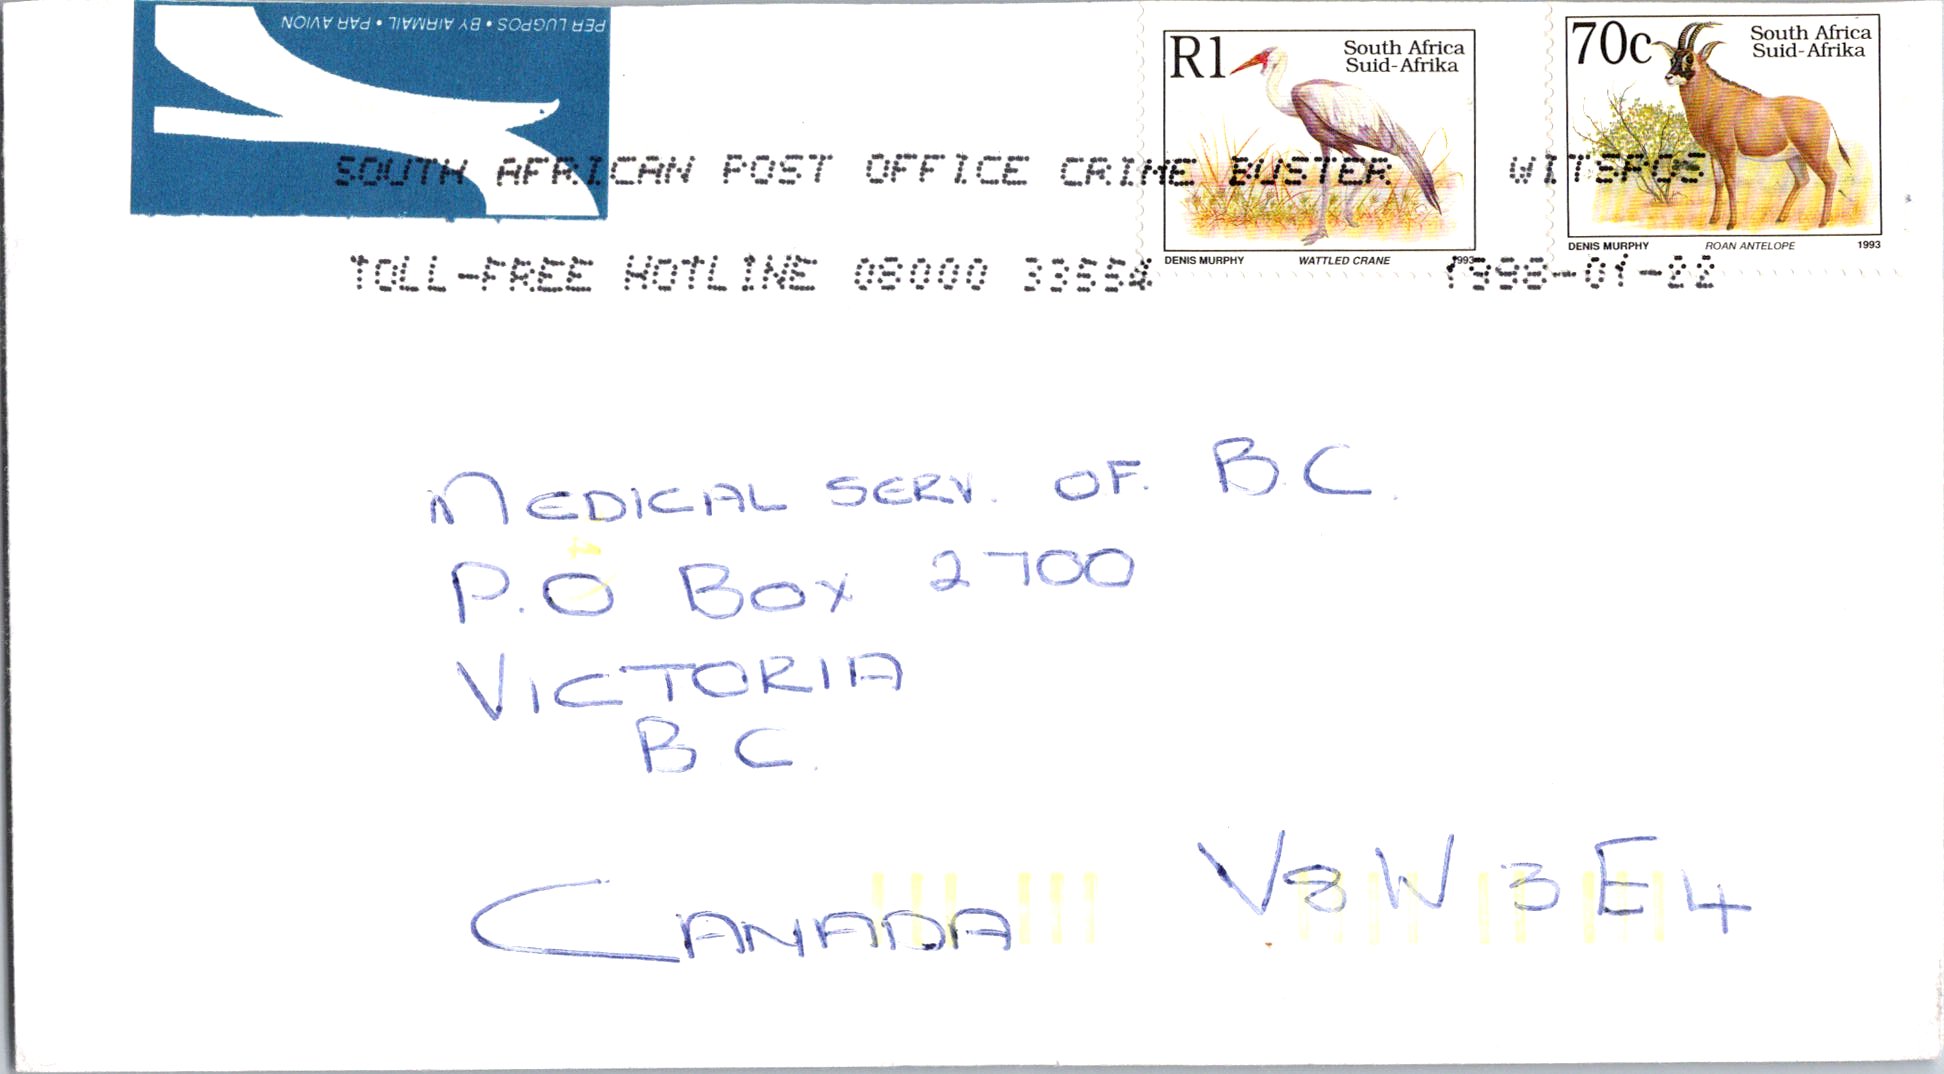 PER LUGPOS • BY AIRMAIL • PAR AVION
R1
South Africa
Suid-Afrika
DENIS MURPHY WATTLED CRANE 1993
70c
South Africa
Suid-Afrika
DENIS MURPHY ROAN ANTELOPE 1993
SOUTH AFRICAN POST OFFICE CRIME BUSTER WITSPOS
TOLL-FREE HOTLINE 08000 33554 1998-01-22
MEDICAL SERV. OF. B.C.
P.O BOX 2700
VICTORIA
B C.
CANADA V8W 3E4